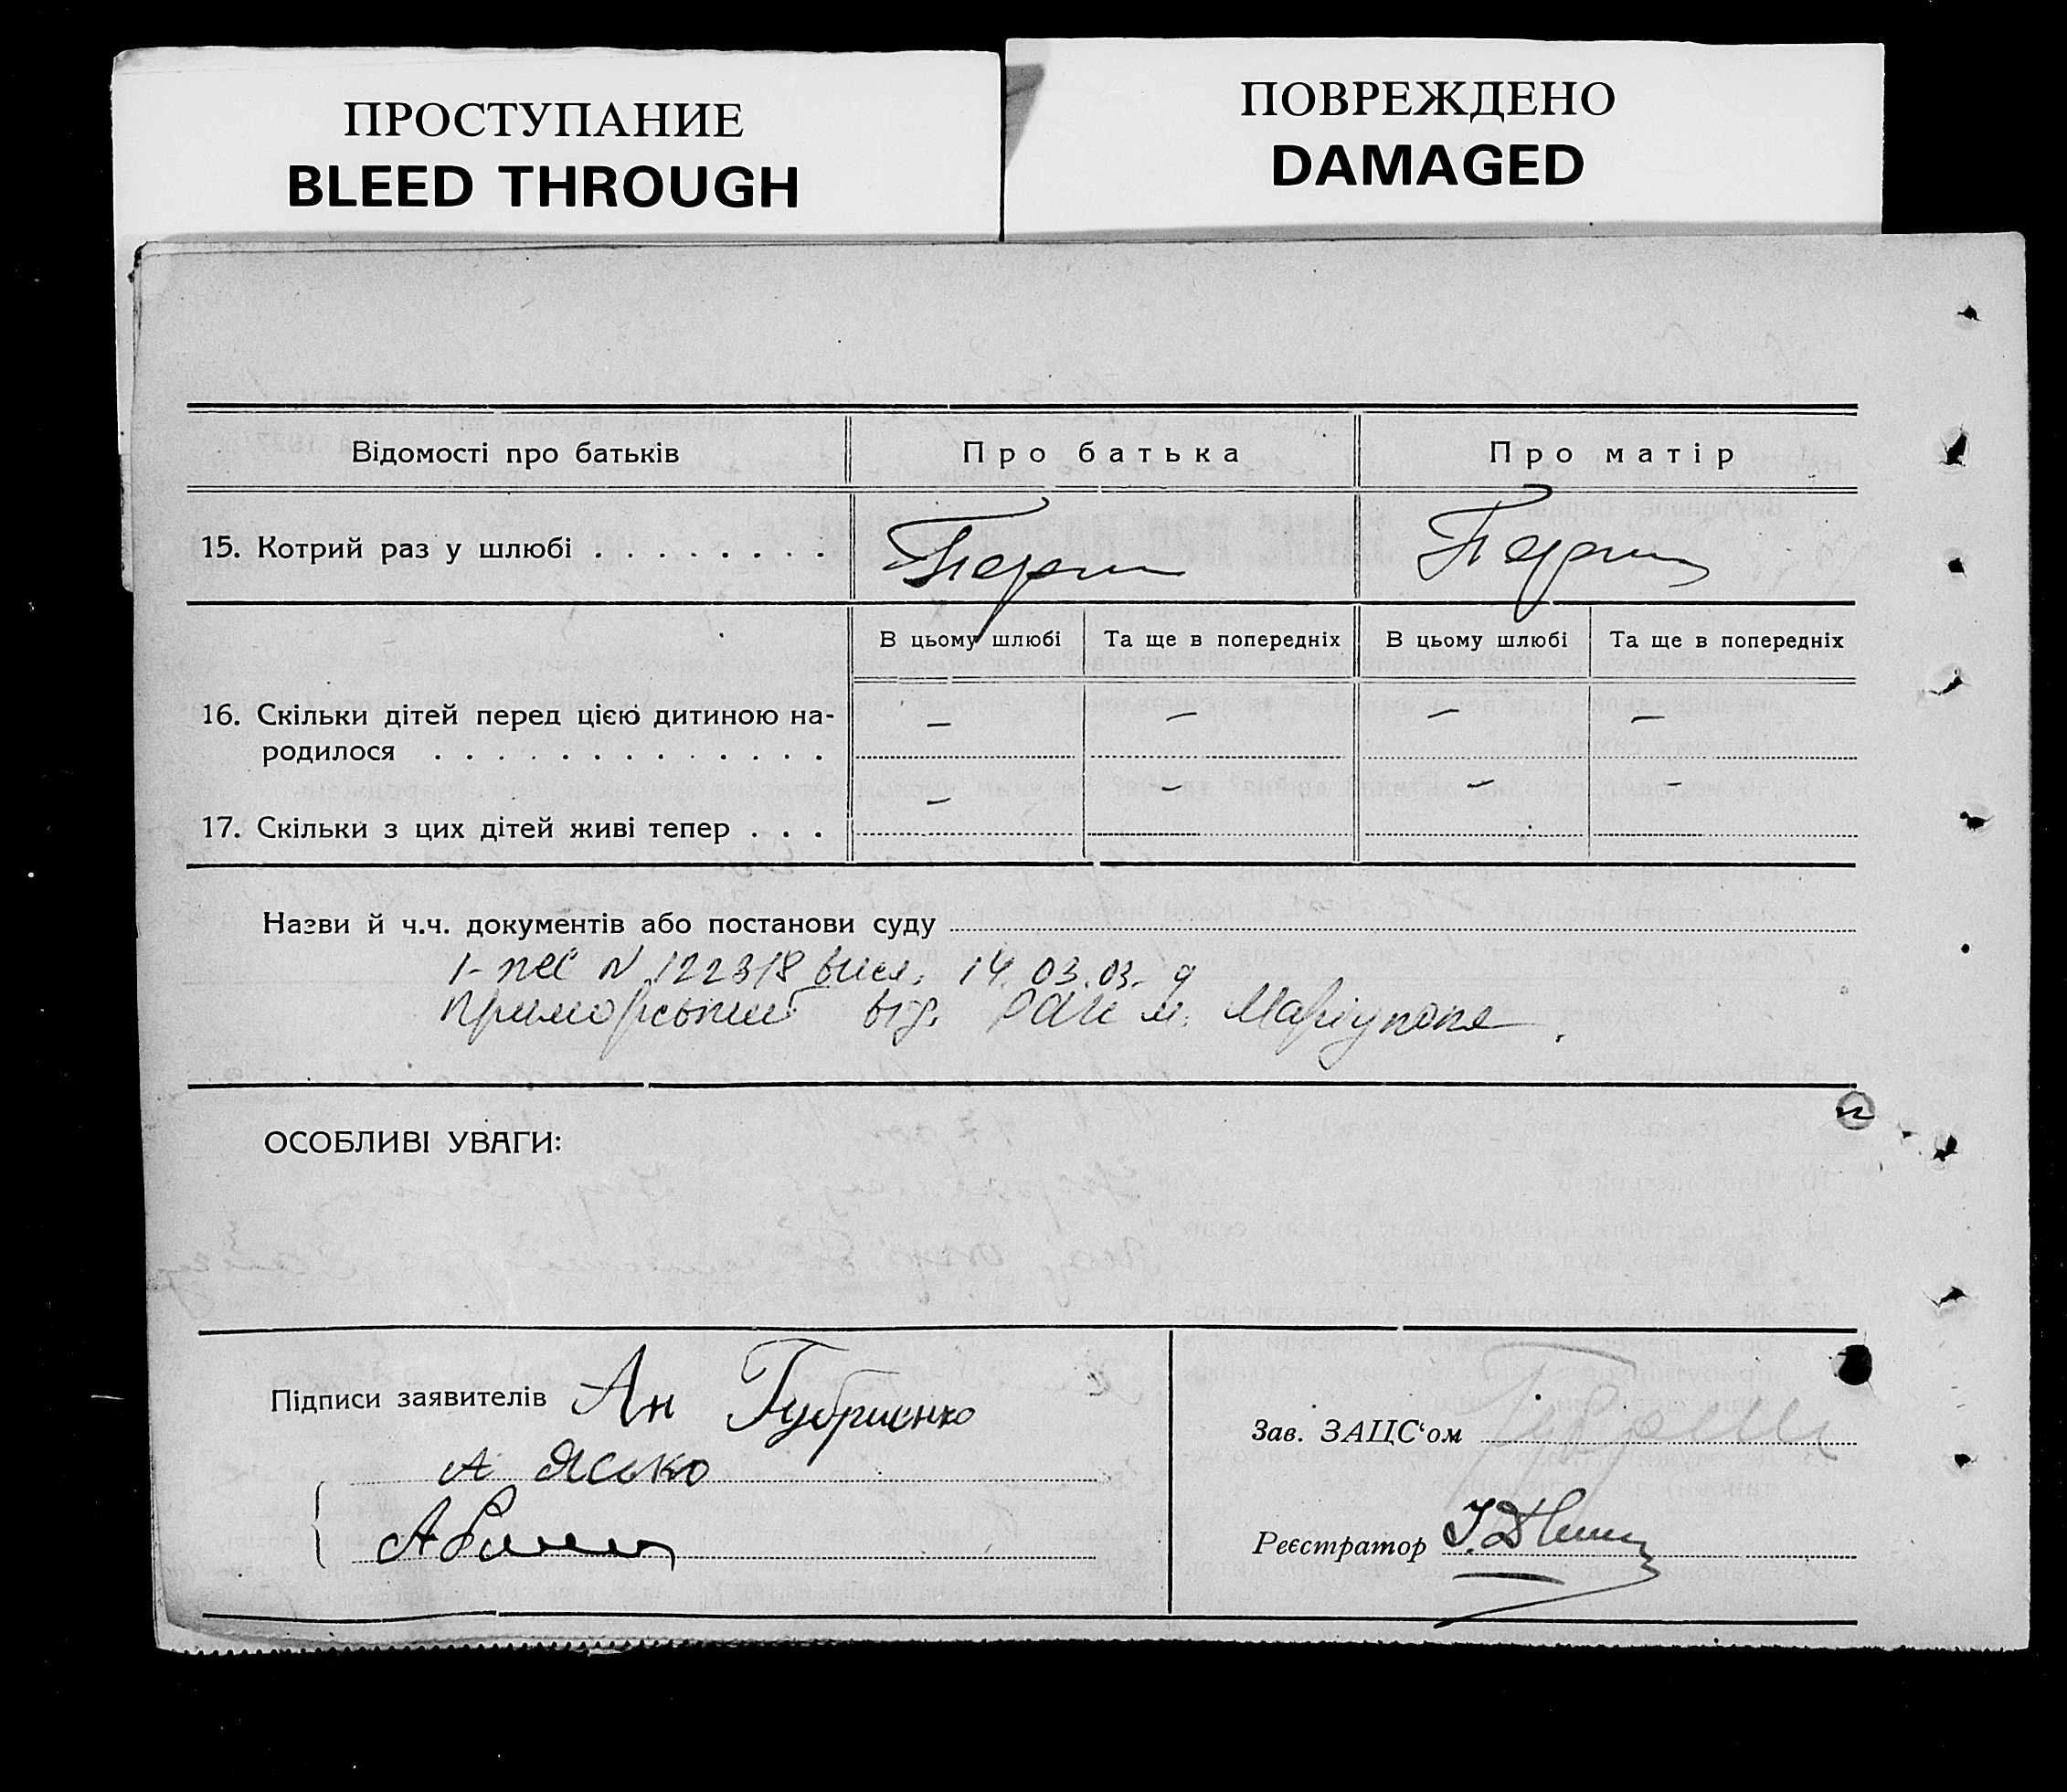 ПРОСТУПАНИЕ
BLEED THROUGH
ПОВРЕЖДЕНО
DAMAGED
Відомості про батьків
Про батька
Про матір
15. Котрий раз у шлюбі . . . . . . . .
Перш
Перш
В цьому шлюбі
Та ще в попередніх
В цьому шлюбі
Та ще в попередніх
16. Скільки дітей перед цією дитиною на-
— — — —
родилося . . . . . . . . . . . . .
17. Скільки з цих дітей живі тепер . . .
— — — —
Назви й ч.ч. документів або постанови суду
N 122318 14.03.03.
Приморський від. РАЦ м. Маріуполя.
ОСОБЛИВІ УВАГИ:
Підписи заявителів Ан Губриенко
А Ясько
Зав. ЗАЦС'ом
Реєстратор